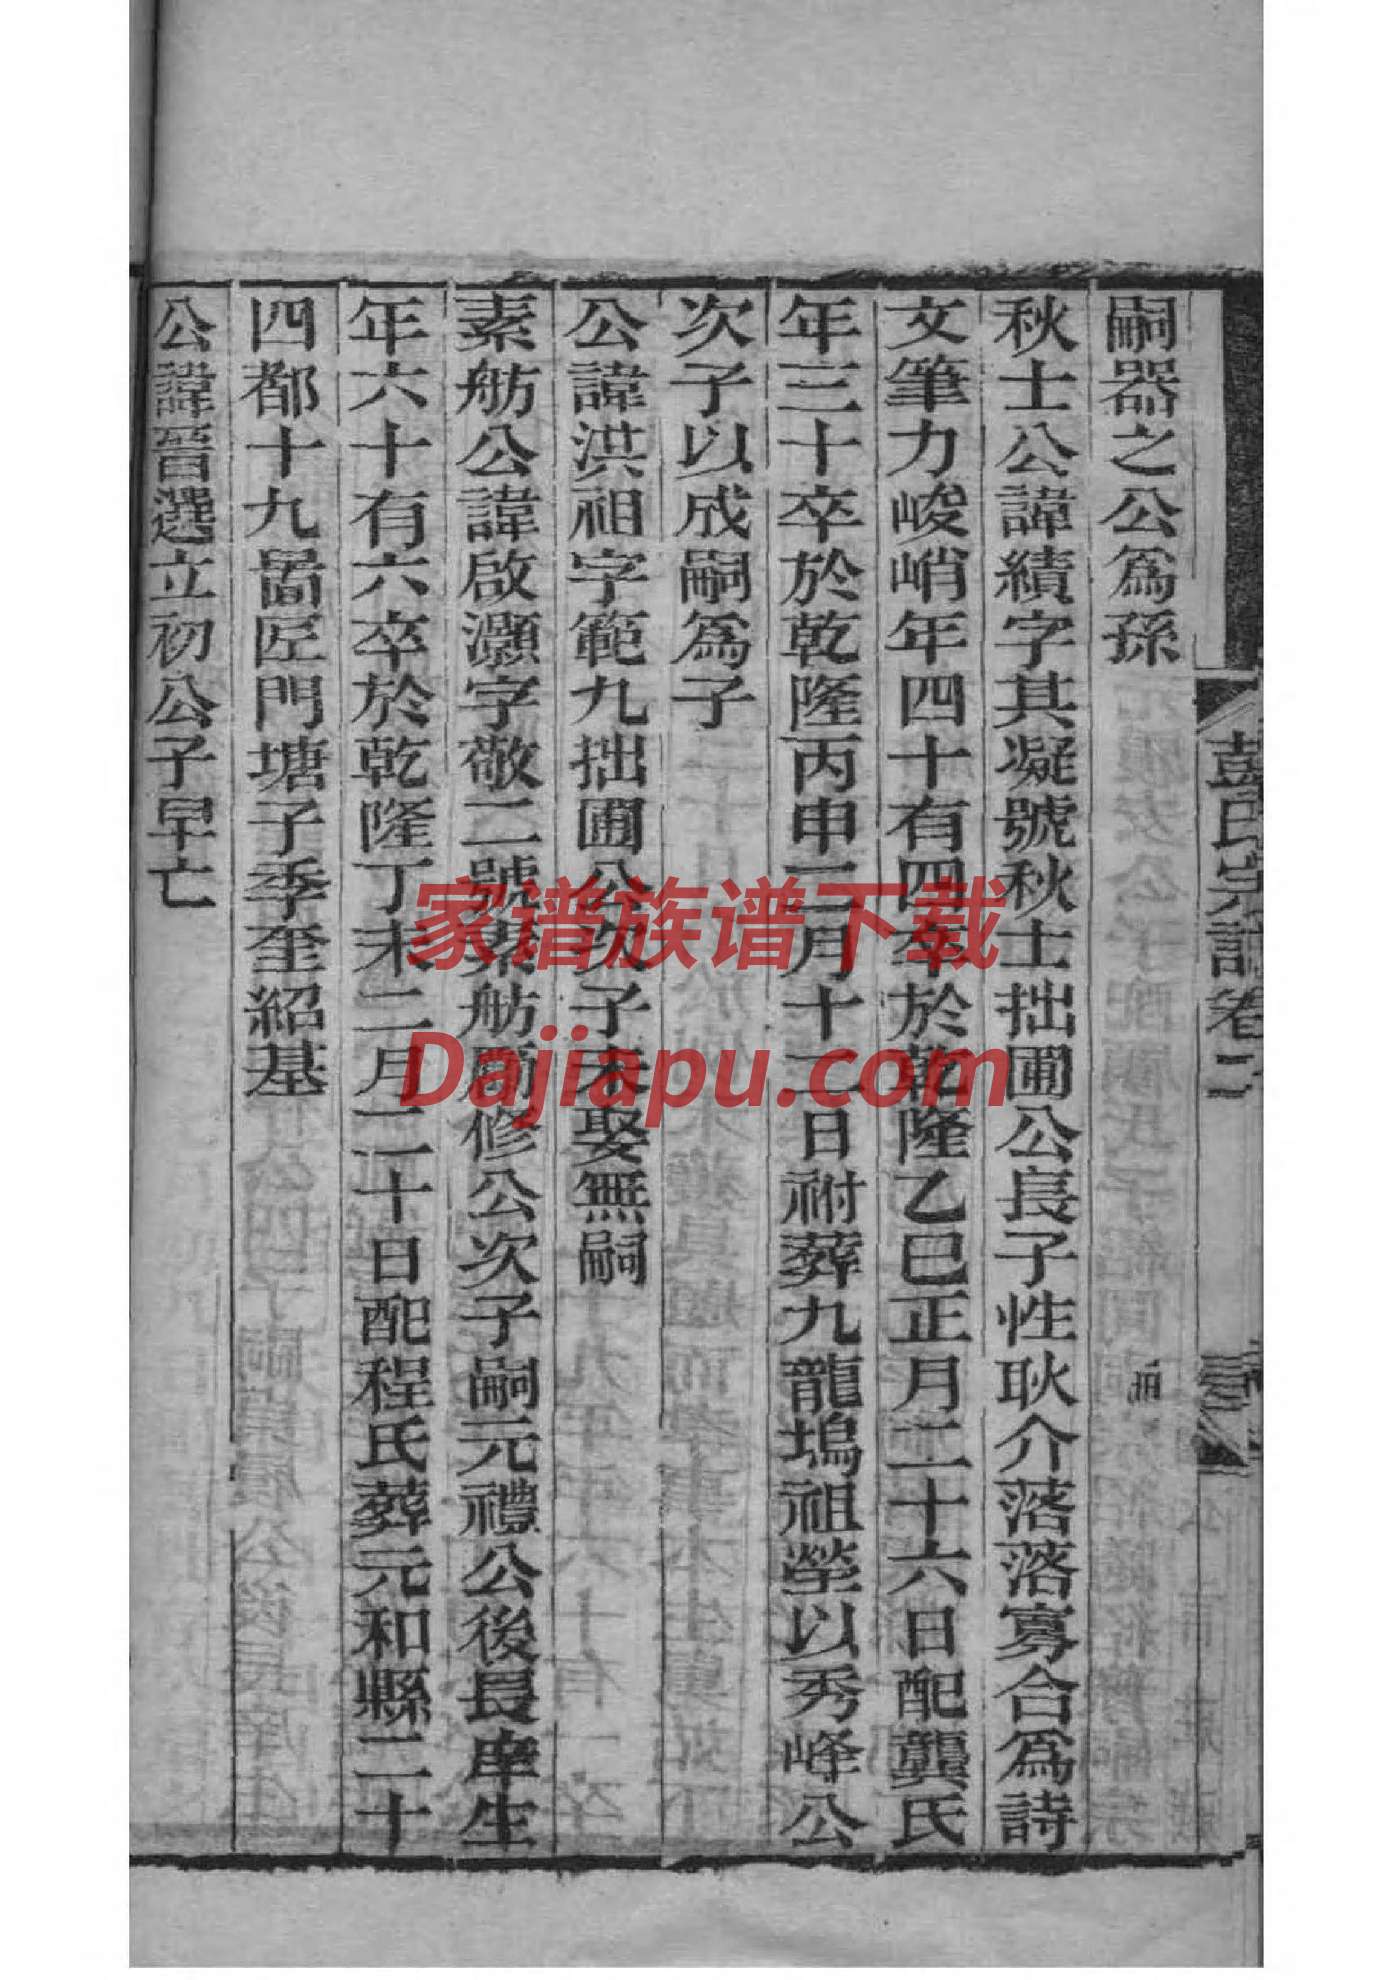 彭氏宗譜卷二
嗣器之公爲孫
秋士公諱績字其凝號秋士拙圃公長子性耿介落落寡合爲詩
文筆力峻峭年四十有四卒於乾隆乙巳正月二十六日配龔氏
年三十卒於乾隆丙申三月十二日祔葬九龍塢祖塋以秀峰公
次子以成嗣爲子
公諱洪祖字範九拙圃公次子未娶無嗣
素舫公諱啟灝字敬二號素舫簡修公次子嗣元禮公後長庠生
年六十有六卒於乾隆丁未二月二十日配程氏葬元和縣二十
四都十九啚匠門塘子季奎紹基
公諱晉選立初公子早亡
家谱族谱下载
Dajiapu.com